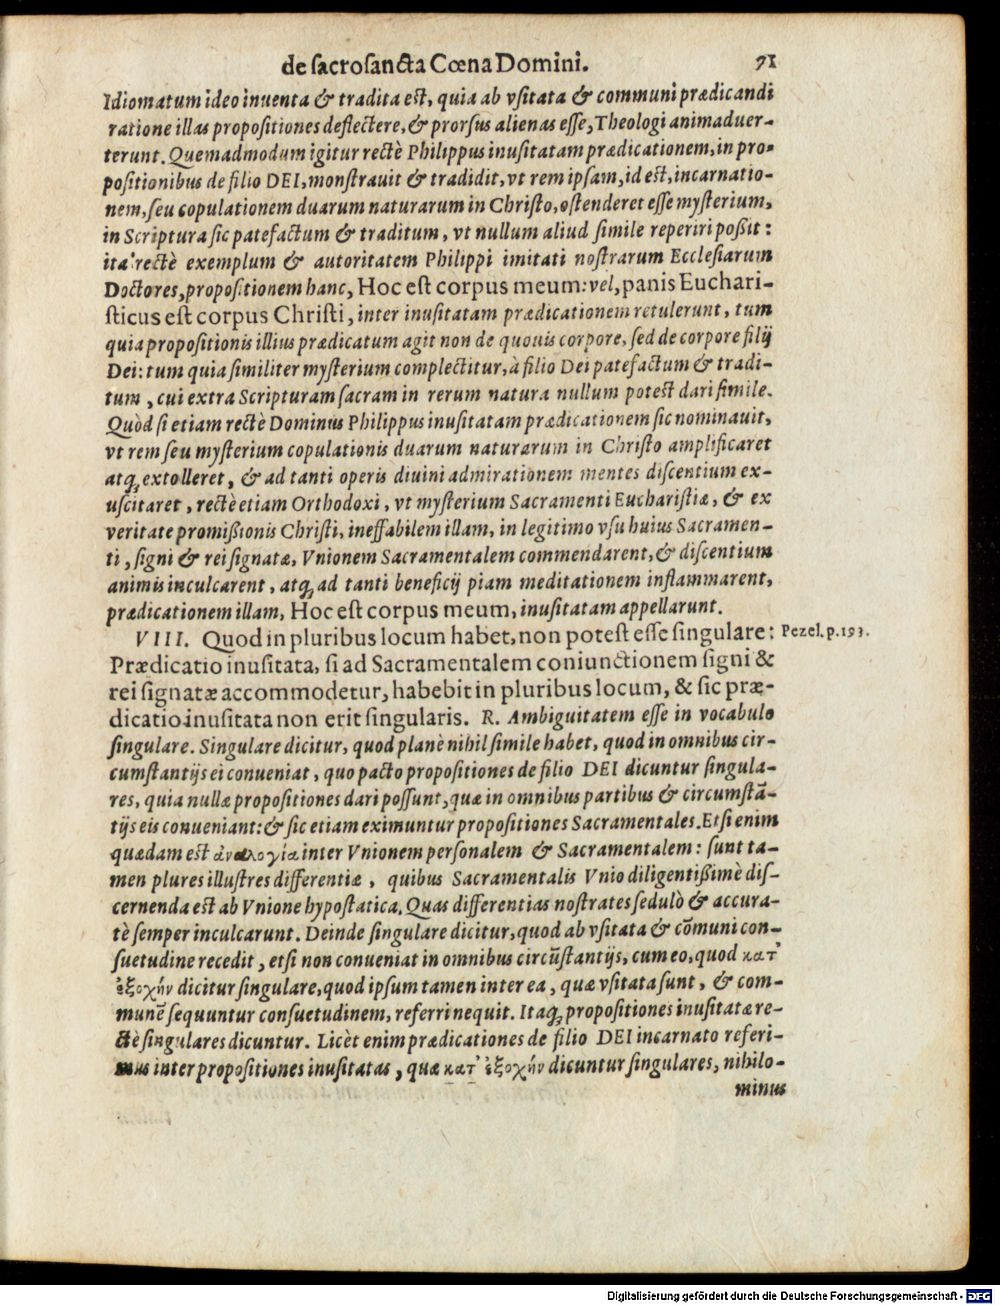 de ſacroſancta Cœna Domini. 71
Idiomatum ideo inuenta & tradita eſt, quia ab vſitata & communi prædicandi
ratione illas propoſitiones deflectere, & prorſus alienas eſſe, Theologi animaduer-
terunt. Quemadmodum igitur rectè Philippus inuſitatam prædicationem, in pro-
poſitionibus de filio DEI, monſtrauit & tradidit, vt rem ipſam, id eſt, incarnatio-
nem, ſeu copulationem duarum naturarum in Chriſto, oſtenderet eſſe myſterium,
in Scriptura ſic patefactum & traditum, vt nullum aliud ſimile reperiri poßit:
ita rectè exemplum & autoritatem Philippi imitati noſtrarum Eccleſiarum
Doctores, propoſitionem hanc, Hoc eſt corpus meum: vel, panis Euchari-
ſticus eſt corpus Chriſti, inter inuſitatam prædicationem retulerunt, tum
quia propoſitionis illius prædicatum agit non de quouis corpore, ſed de corpore filij
Dei: tum quia ſimiliter myſterium complectitur, à filio Dei patefactum & tradi-
tum, cui extra Scripturam ſacram in rerum natura nullum poteſt dari ſimile.
Quòd ſi etiam rectè Dominus Philippus inuſitatam prædicationem ſic nominauit,
vt rem ſeu myſterium copulationis duarum naturarum in Chriſto amplificaret
atq; extolleret, & ad tanti operis diuini admirationem mentes diſcentium ex-
uſcitaret, rectè etiam Orthodoxi, vt myſterium Sacramenti Euchariſtiæ, & ex
veritate promißionis Chriſti, ineffabilem illam, in legitimo vſu huius Sacramen-
ti, ſigni & rei ſignatæ, Vnionem Sacramentalem commendarent, & diſcentium
animis inculcarent, atq; ad tanti beneficij piam meditationem inflammarent,
prædicationem illam, Hoc eſt corpus meum, inuſitatam appellarunt.
VIII. Quod in pluribus locum habet, non poteſt eſſe ſingulare: Pezel. p. 193.
Prædicatio inuſitata, ſi ad Sacramentalem coniunctionem ſigni &
rei ſignatæ accommodetur, habebit in pluribus locum, & ſic præ-
dicatio inuſitata non erit ſingularis. R. Ambiguitatem eſſe in vocabulo
ſingulare. Singulare dicitur, quod planè nihil ſimile habet, quod in omnibus cir-
cumſtantijs ei conueniat, quo pacto propoſitiones de filio DEI dicuntur ſingula-
res, quia nullæ propoſitiones dari poſſunt, quæ in omnibus partibus & circumſtã-
tijs eis conueniant: & ſic etiam eximuntur propoſitiones Sacramentales. Etſi enim
quædam eſt ἀναλογία inter Vnionem perſonalem & Sacramentalem: ſunt ta-
men plures illuſtres differentiæ, quibus Sacramentalis Vnio diligentißimè diſ-
cernenda eſt ab Vnione hypoſtatica. Quas differentias noſtrates ſedulò & accura-
tè ſemper inculcarunt. Deinde ſingulare dicitur, quod ab vſitata & cõmuni con-
ſuetudine recedit, etſi non conueniat in omnibus circũſtantijs, cum eo, quod κατ'
ἐξοχήν dicitur ſingulare, quod ipſum tamen inter ea, quæ vſitata ſunt, & com-
munẽ ſequuntur conſuetudinem, referri nequit. Itaq; propoſitiones inuſitatæ re-
ctè ſingulares dicuntur. Licèt enim prædicationes de filio DEI incarnato referi-
mus inter propoſitiones inuſitatas, quæ κατ' ἐξοχήν dicuntur ſingulares, nihilo-
minus
Digitalisierung gefördert durch die Deutsche Forschungsgemeinschaft - DFG